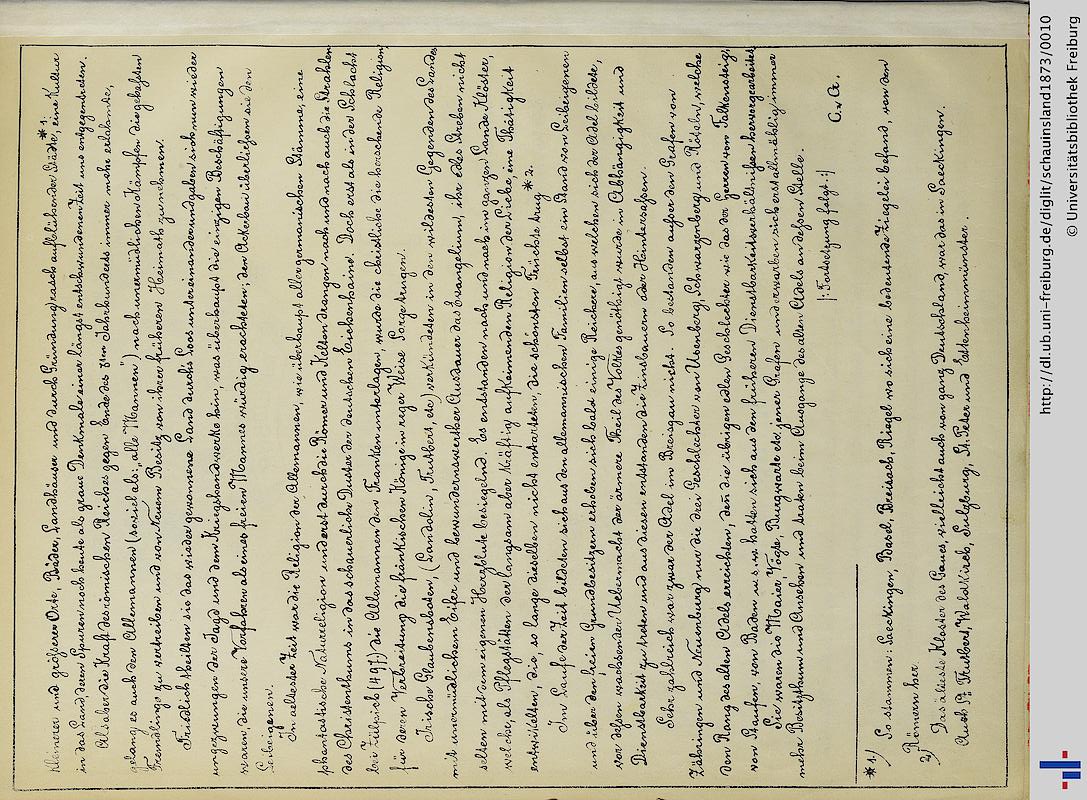 kleinerer und größerer Orte, Bäder, Landhäuser und durch Gründung rasch aufblühender Städte, eine Kultur *1.
in das Land, deren Spuren noch heute als graue Denkmale einer längst entschwundenen Zeit uns entgegentreten.
Als aber die Kraft des römischen Reiches gegen Ende des 3ten Jahrhunderts immer mehr erlahmte,
gelang es auch den Allemannen (soviel als: „alle Mannen“) nach unermüdlichen Kämpfen die gehaßten
Fremdlinge zu vertreiben und von Neuem Besitz von ihrer früheren Heimath zu nehmen.
Friedlich theilten sie das wieder gewonnene Land durch's Loos unter einander und gaben sich nun wieder
ungezwungen der Jagd und dem Kriegshandwerke hin, was überhaupt die einzigen Beschäftigungen
waren, die unsere Vorfahren als eines freien Mannes würdig erachteten; den Ackerbau überließen sie den
Leibeigenen.
In ältester Zeit war die Religion der Allemannen, wie überhaupt aller germanischen Stämme, eine
phantastische Naturreligion und erst durch die Römer und Kelten drangen nach und nach auch die Strahlen
des Christenthums in das schauerliche Dunkel der deutschen Eichenhaine. Doch erst als in der Schlacht
bei Zülpich (497) die Allemannen den Franken unterlagen, wurde die christliche die herrschende Religion,
für deren Verbreitung die fränkischen Könige in reger Weise Sorge trugen.
Irische Glaubensboten, (Landolin, Trutbert, etc) verkündeten in den wildesten Gegenden des Landes
mit unermüdlichem Eifer und bewundernswerther Ausdauer das Evangelium, ihr edles Streben nicht
selten mit dem eigenen Herzblute besiegelnd. Es entstanden nach und nach im ganzen Lande Klöster,
welche, als Pflegstätten der langsam aber kräftig aufkeimenden Religion der Liebe, eine Thätigkeit
entwickelten, die, so lange dieselben nicht entarteten, die schönsten Früchte trug. *2.
Im Laufe der Zeit bildeten sich aus den allemannischen Familien selbst ein Stand von Leibeigenen
und über den freien Grundbesitzern erhoben sich bald einige Reichere, aus welchen sich der Adel bildete,
vor dessen wachsender Uebermacht der ärmere Theil des Volkes genöthigt wurde in Abhängigkeit und
Dienstbarkeit zu treten und aus diesen entstanden die Zinsbauern oder Hintersaßen.
Sehr zahlreich war zwar der Adel im Breisgau nicht. So bestanden außer den Grafen von
Zähringen und Neuenburg nur die drei Geschlechter von Uesenberg, Schwarzenberg und Röteln, welche
den Rang des alten Adels erreichten, denn die übrigen edlen Geschlechter wie das der Herren von Falkensteig,
von Staufen, von Baden u.s.w. hatten sich aus den früheren Dienstbarkeitsverhältnißen hervorgearbeitet.
Sie waren die Maier, Vögte, Burgwarte etc. jener Grafen und erwarben sich erst allmählig immer
mehr Besitzthum und Ansehen und traten beim Ausgange des alten Adels an dessen Stelle.
|: Fortsetzung folgt :|
C. v. A.
*1.) So stammen: Saeckingen, Basel, Breisach, Riegel wo sich eine bedeutende Ziegelei befand, von den
Römern her.
2.) Das älteste Kloster des Gaues, vielleicht auch von ganz Deutschland, war das in Saeckingen.
Auch St. Trutbert, Waldkirch, Sulzburg, St. Peter und Ettenheimmünster.
http://dl.ub.uni-freiburg.de/diglit/schauinsland1873/0010
© Universitätsbibliothek Freiburg